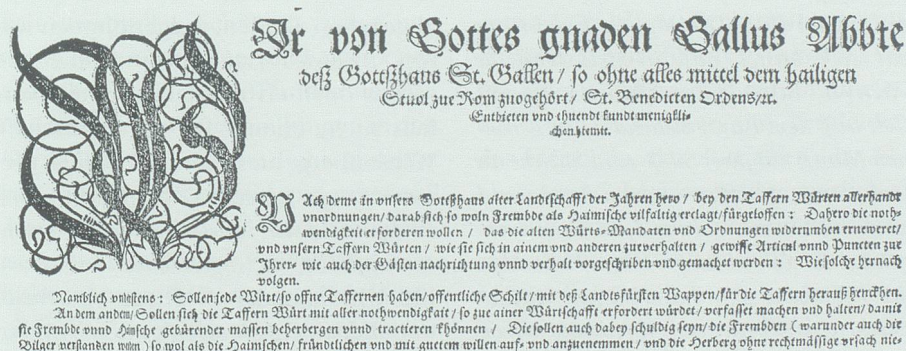 Wir von Gottes gnaden Gallus Abbte
deß Gottßhaus St. Gallen / so ohne alles mittel dem hailigen
Stuol zue Rom zuogehört / St. Benedicten Ordens / ꝛc.
Entbieten vnd thuendt kundt menigkli-
chen hiemit.
NAch deme in vnsers Gottßhaus alter Landtschafft der Jahren hero / bey den Taffern Würten allerhandt
vnordnungen / darab sich so woln Frembde als Haimische vilfaltig erclagt / fürgeloffen : Dahero die noth-
wendigkeit erforderen wollen / das die alten Würts-Mandaten vnd Ordnungen widerumben erneweret /
vnd vnsern Taffern Würten / wie sie sich in ainem vnd anderen zueverhalten / gewisse Articul vnnd Puncten zue
Ihrer- wie auch der Gästen nachrichtung vnnd verhalt vorgeschriben vnd gemachet werden : Wie solche hernach
volgen.
Namblich erstens : Sollen jede Würt / so offne Taffernen haben / offentliche Schilt / mit deß Landtsfürsten Wappen / für die Taffern herauß henckhen.
An dem andern / Sollen sich die Taffern Würt mit aller nothwendigkait / so zue ainer Würtschafft erfordert würdet / verfasset machen vnd halten / damit
sie Frembde vnnd Haimsche gebürender massen beherbergen vnnd tractieren khönnen / Die sollen auch dabey schuldig seyn / die Frembden ( warunder auch die
Bilger verstanden ) so wol als die Haimschen / fründtlichen vnd mit guetem willen auf- vnd anzuenemmen / vnd die Herberg ohne rechtmässige vrsach nie-